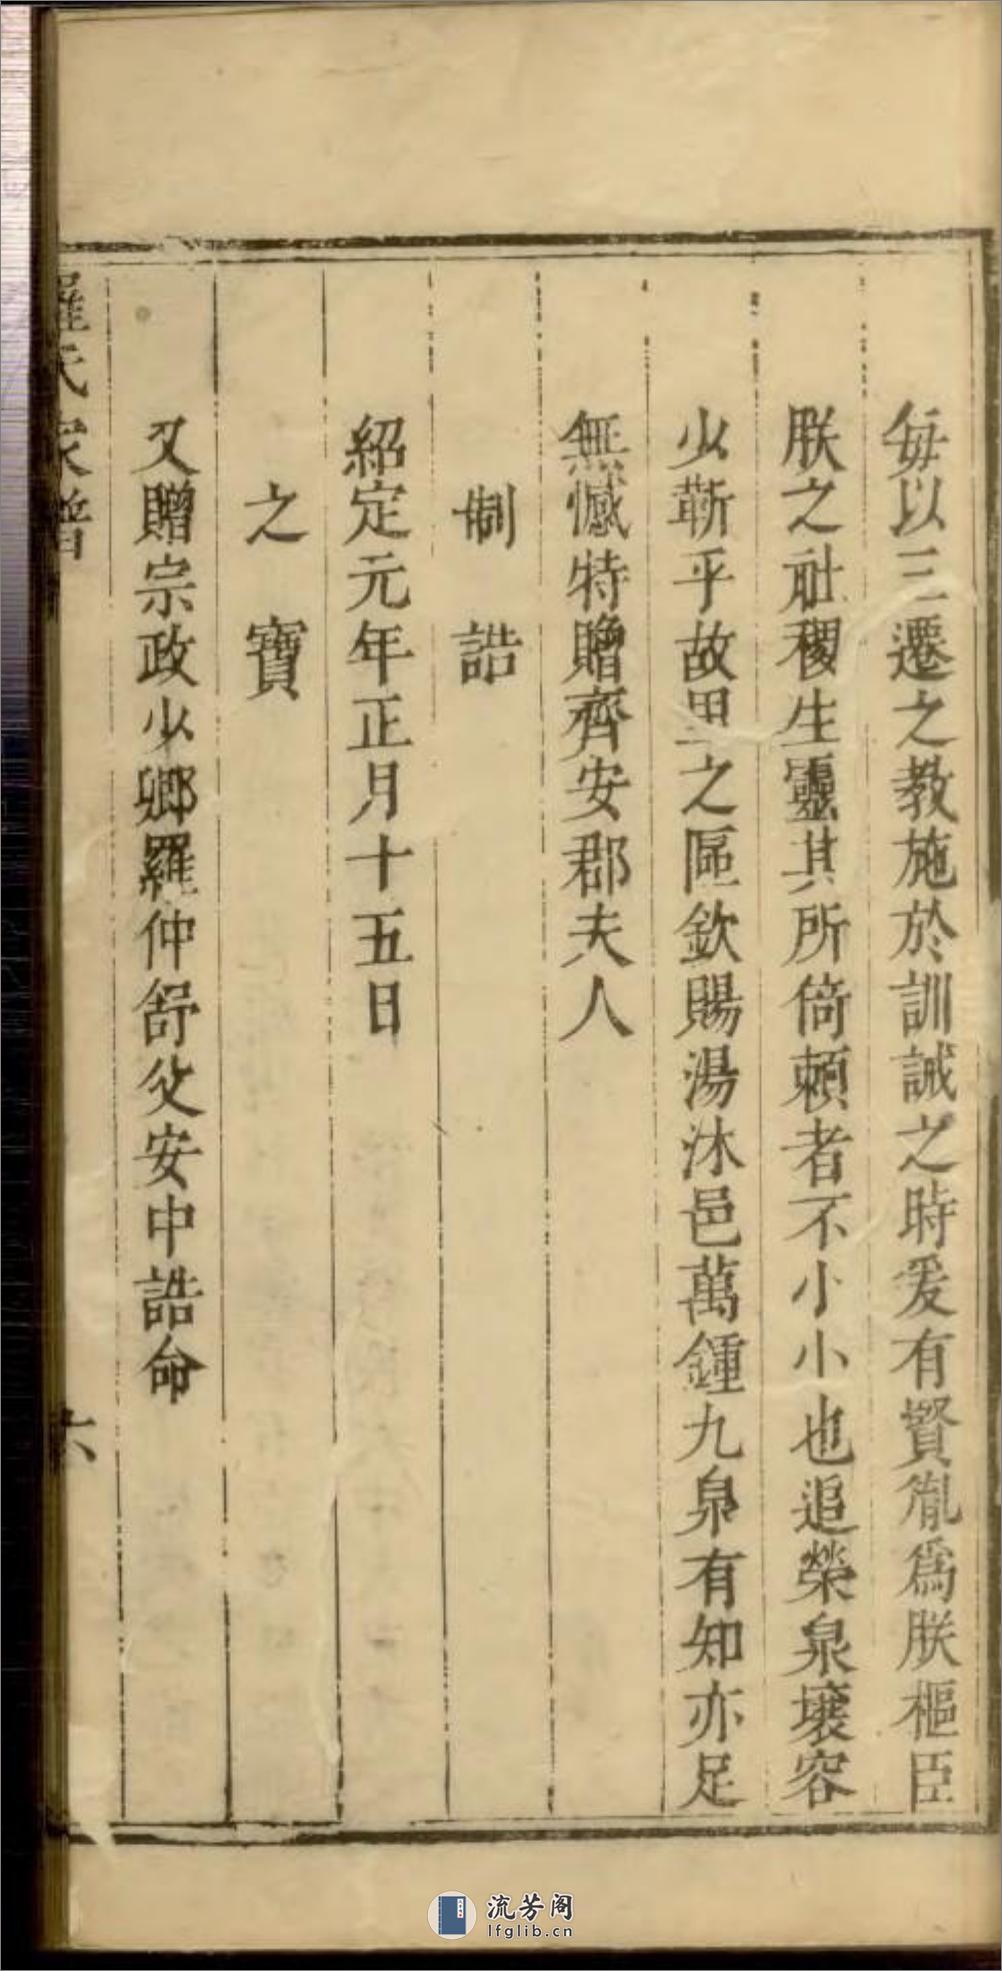 每以三遷之教施於訓誡之時爰有賢胤爲朕樞臣
朕之社稷生靈其所倚賴者不小小也追榮泉壤容
少蘄乎故里之區欽賜湯沐邑萬鍾九泉有知亦足
無憾特贈齊安郡夫人
制誥
紹定元年正月十五日
之寶
又贈宗政少卿羅仲舒父安中誥命
羅氏家譜
六
流芳阁
lfglib.cn